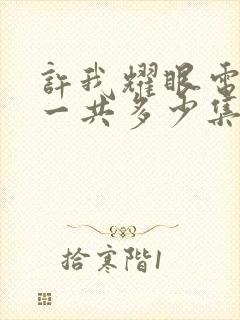 許我耀眼電
一共多少集
拾寒階1